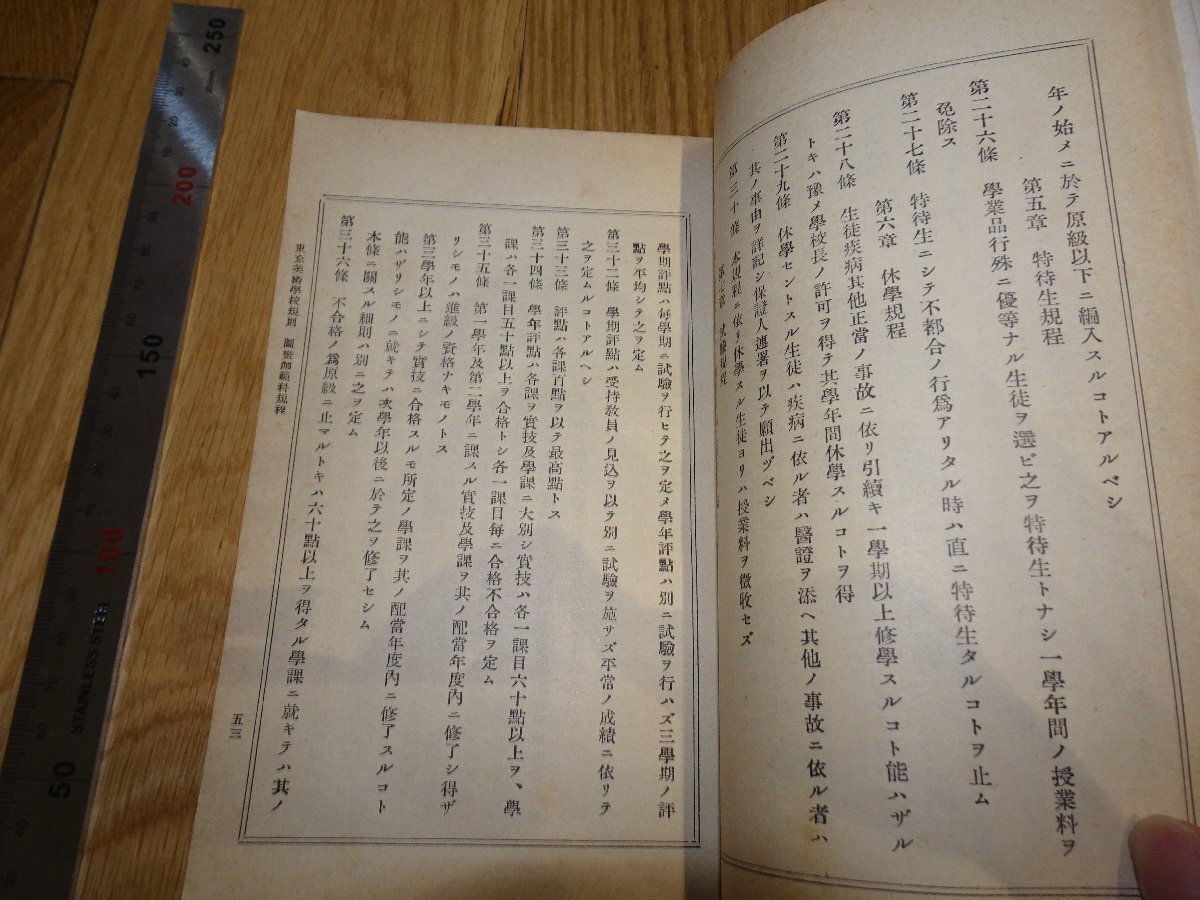 年ノ始メニ於テ原級以下ニ編入スルコトアルベシ
第五章 特待生規程
第二十六條 學業品行殊ニ優等ナル生徒ヲ選ビ之ヲ特待生トナシ一學年間ノ授業料ヲ
免除ス
第二十七條 特待生ニシテ不都合ノ行爲アリタル時ハ直ニ特待生タルコトヲ止ム
第六章 休學規程
第二十八條 生徒疾病其他正當ノ事故ニ依リ引續キ一學期以上修學スルコト能ハザル
トキハ豫メ學校長ノ許可ヲ得テ其學年間休學スルコトヲ得
第二十九條 休學セントスル生徒ハ疾病ニ依ル者ハ醫證ヲ添ヘ其他ノ事故ニ依ル者ハ
其ノ事由ヲ詳記シ保證人連署ヲ以テ願出ヅベシ
第三十條 本規程ニ依リ休學スル生徒ヨリハ授業料ヲ徴收セズ
試驗規程
學期評點ハ每學期ニ試驗ヲ行ヒテ之ヲ定メ學年評點ハ別ニ試驗ヲ行ハズ三學期ノ評
點ヲ平均シテ之ヲ定ム
第三十二條 學期評點ハ受持敎員ノ見込ヲ以テ別ニ試驗ヲ施サズ平常ノ成績ニ依リテ
之ヲ定ムルコトアルヘシ
第三十三條 評點ハ各課百點ヲ以テ最高點トス
第三十四條 學年評點ハ各課ヲ實技及學課ニ大別シ實技ハ各一課目六十點以上ヲ、學
課ハ各一課目五十點以上ヲ合格トシ各一課目每ニ合格不合格ヲ定ム
第三十五條 第一學年及第二學年ニ課スル實技及學課ヲ其ノ配當年度內ニ修了シ得ザ
リシモノハ進級ノ資格ナキモノトス
第三學年以上ニシテ實技ニ合格スルモ所定ノ學課ヲ其ノ配當年度內ニ修了スルコト
能ハザリシモノニ就キテハ次學年以後ニ於テ之ヲ修了セシム
本條ニ關スル細則ハ別ニ之ヲ定ム
第三十六條 不合格ノ爲原級ニ止マルトキハ六十點以上ヲ得タル學課ニ就キテハ其ノ
東京美術學校規則 圖畫師範科規程
五三
250
200
150
100
50
STAINLESS STEEL